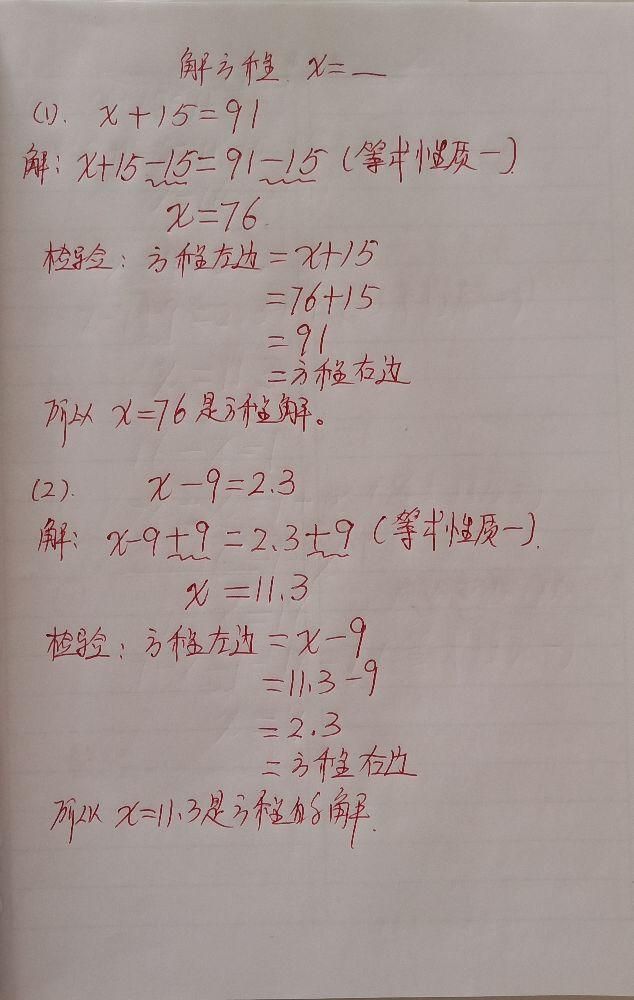 解方程 x=__
(1). x+15=91
解: x+15-15=91-15 (等式性质一).
x=76.
检验: 方程左边=x+15
=76+15
=91
=方程右边
所以 x=76是方程解。
(2). x-9=2.3
解: x-9+9=2.3+9 (等式性质一).
x=11.3
检验: 方程左边=x-9
=11.3-9
=2.3
=方程右边
所以 x=11.3是方程的解.